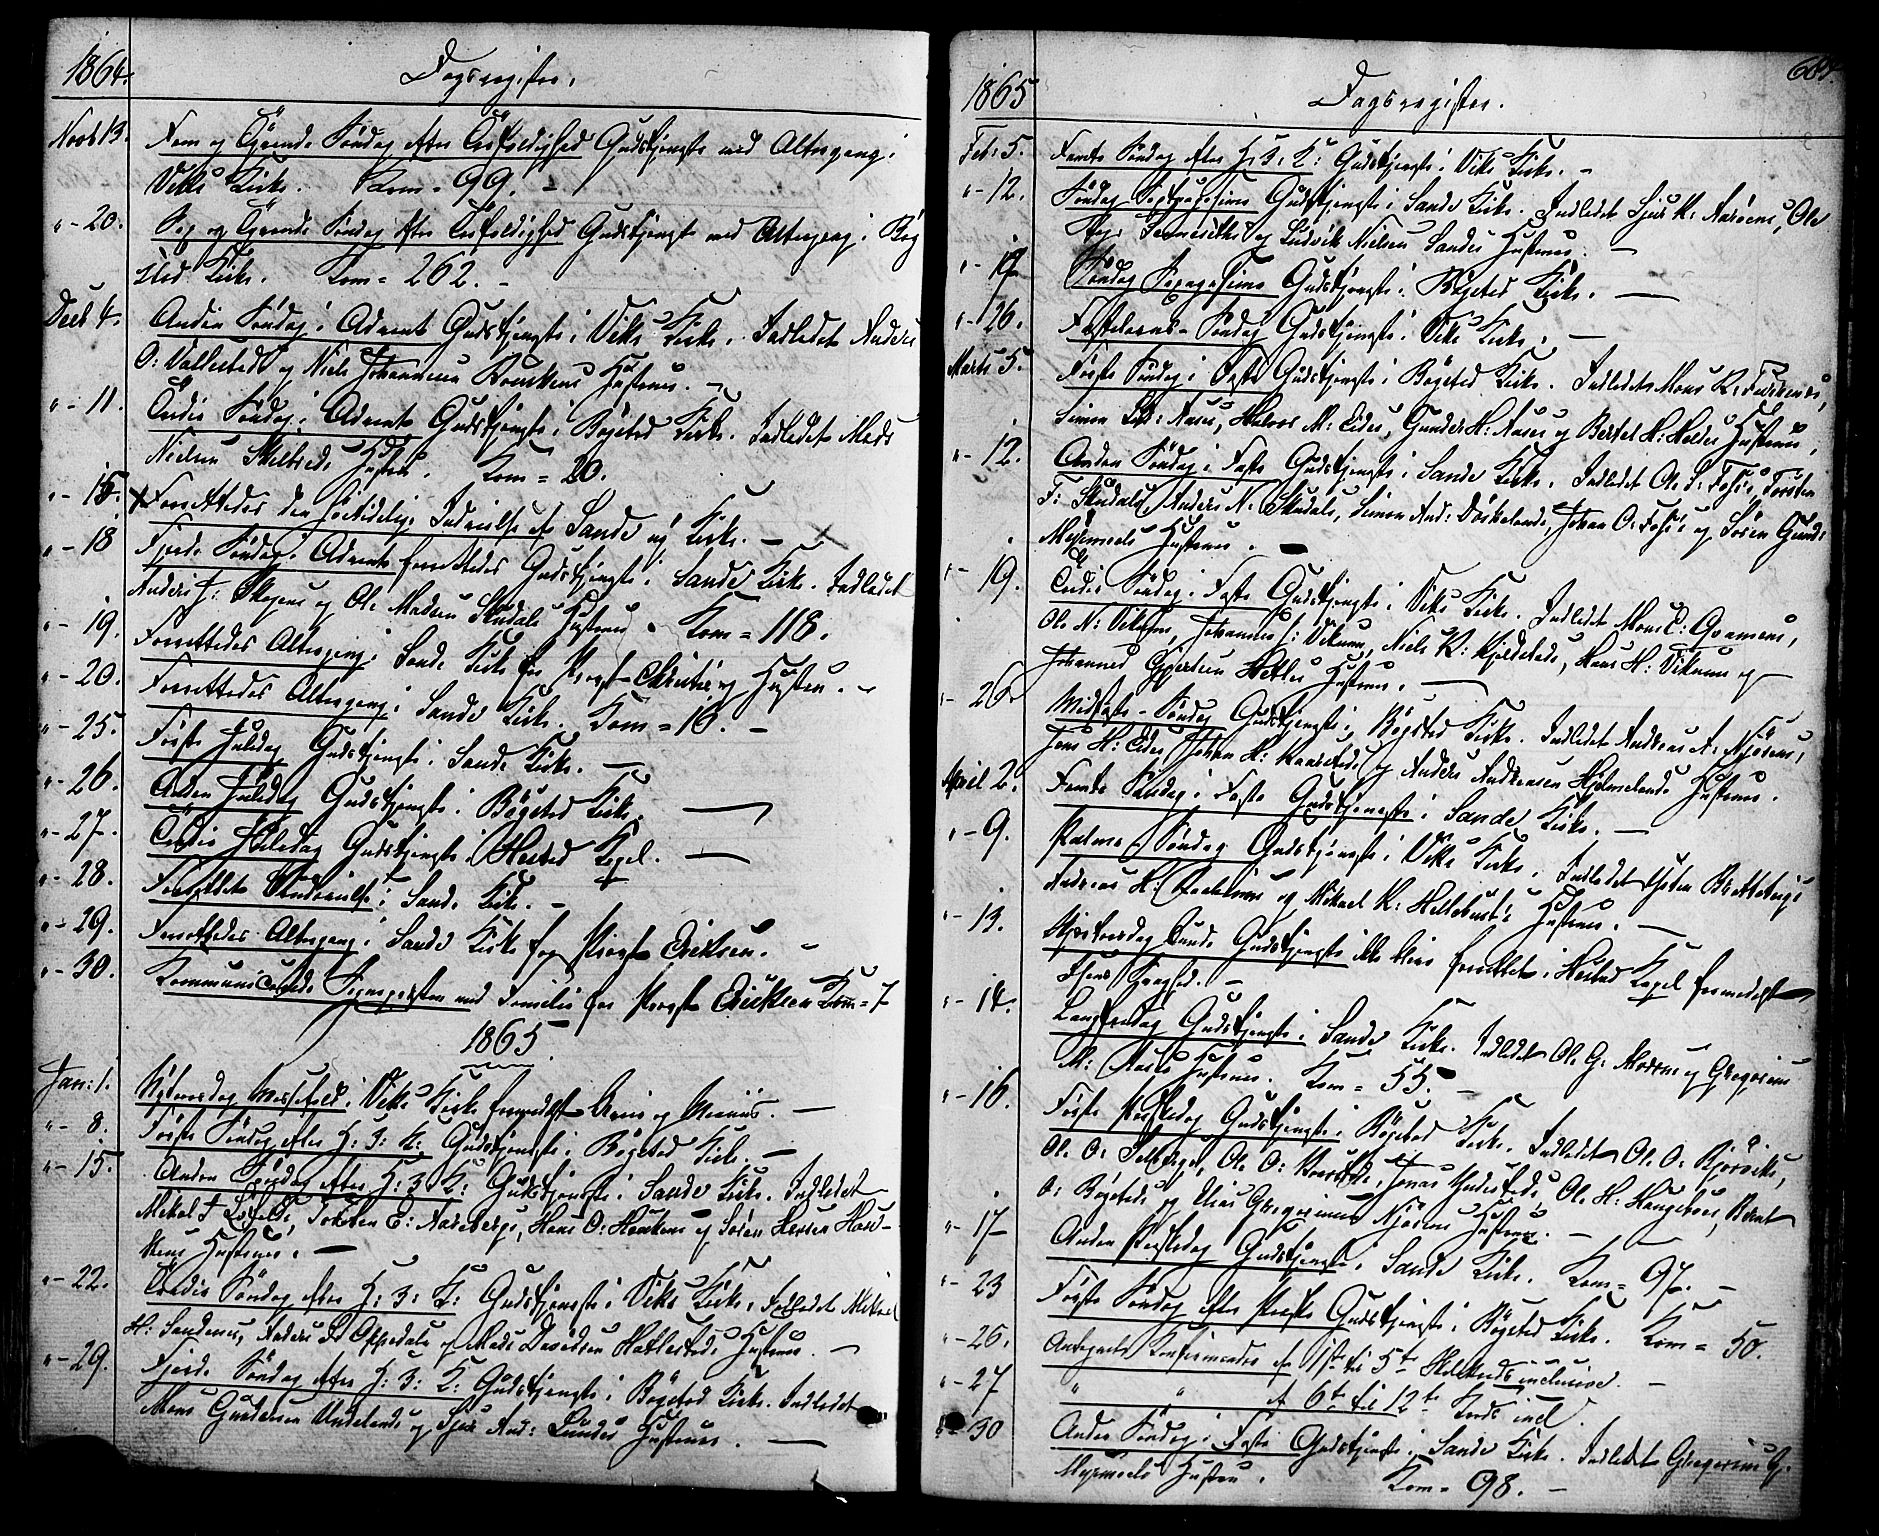 1864.
Dagsregister.
Novb 13.
Fem og Tyvende Søndag efter Trefoldighed Gudstjeneste med Altergang i
Viks Kirke. Kom = 99. –
" – 20.
Sex og Tyvende Søndag efter Trefoldighed Gudstjeneste med Altergang i Bøg
sted Kirke. Kom = 262. –
Decb 4.
Anden Søndag i Advent Gudstjeneste i Viks Kirke. Indledet Anders
O: Vallestad og Niels Johannesen Hustruer. –
" – 11.
Tredie Søndag i Advent Gudstjeneste i Bøgsted Kirke. Indledet Mads
Nielsen Hustru. Kom = 20.
" – 15.
Forrettedes den høitidelige Indvielse af Sande ny Kirke. –
" – 18
Fjerde Søndag i Advent forrettedes Gudstjeneste i Sande Kirke. Indledet
Anders J: og Ole Madsen Skudals Hustruer. Kom = 118.
" – 19.
Forrettedes Altergang i Sande Kirke for Provst Christie og Hustru. –
" – 20.
Forrettedes Altergang i Sande Kirke. Kom = 16. –
" – 25.
Første Juledag Gudstjeneste i Sande Kirke. –
" – 26.
Anden Juledag Gudstjeneste i Bøgsted Kirke. –
" – 27.
Tredie Juledag Gudstjeneste i Hested Kapel. –
" – 28.
i Sande Kirke. –
" – 29.
Forrettedes Altergang i Sande Kirke for Provst Eriksen. –
" – 30.
Kommunicerede Sognepresten med Familie for Provst Ericksen Kom = 7
1865
Jan: 1.
Nytaarsdag Messefald i Viks Kirke formedelst
" – 8.
Første Søndag efter H: 3: K: Gudstjeneste i Bøgsted Kirke. –
" – 15.
Anden Søndag efter H: 3: K: Gudstjeneste i Sande Kirke. Indledet
Mikal J Torsten E: Aarebergs, Hans O: Haukens og Søren Hansen Hau-
kens Hustruer. –
" – 22.
Tredie Søndag efter H: 3: K: Gudstjeneste i Viks Kirke. Indledet Mikael
H: Sandenes, Anders Oppedals og Mads Davidsen Hatlestads Hustruer. –
" – 29.
Fjerde Søndag efter H: 3: K: Gudstjeneste i Bøgsted Kirke. Indledet
Mons Gundersen Undelands og Sjur And: Lundes Hustruer. –
1865
Dagsregister.
Feb: 5.
Femte Søndag efter H: 3: K: Gudstjeneste i Viks Kirke. –
" – 12.
Søndag Septuagesima Gudstjeneste i Sande Kirke. Indledet Sjur K: Aaröens, Ole
og Ludvik Nielsen Sandes Hustruer. –
" – 19
Søndag Sexagesima Gudstjeneste i Bøgsted Kirke. –
" – 26.
Fastelavns-Søndag Gudstjeneste i Viks Kirke. –
Marts 5.
Første Søndag i Faste Gudstjeneste i Bøgsted Kirke. Indledet Mons R:
Simon Aases, Halvor M: Eides, Gunder H: Aases og Bertel H: Heldes Hustruer.
" – 12.
Anden Søndag i Faste Gudstjeneste i Sande Kirke. Indledet Ole S: Torsten
T: Skudals, Anders N: Skudals, Simon And: Döskelands, Johan O: og Sören Gund:
Myrmeels Hustruer. –
" – 19.
Tredie Søndag i Faste Gudstjeneste i Viks Kirke. Indledet Mons E:
Ole N: Johannes J: Viknæs, Niels K: Kjelstads, Hans H: Viknæs og
Johannes Gjertsen Hetles Hustruer. –
" – 26
Midfaste-Søndag Gudstjeneste i Bøgsted Kirke. Indledet Andreas A: Njösens,
Jens H: Eides, Johan H: og Anders Andreasen Hjelmelands Hustruer.
April 2.
Femte Søndag i Faste Gudstjeneste i Sande Kirke. –
" – 9.
Palme-Søndag Gudstjeneste i Viks Kirke. Indledet
Andreas H: og Mikael K: Hellebusts Hustruer. –
" – 13.
Skjærtorsdag kunde Gudstjeneste ikke blive forrettet i Hested Kapel formedelst
–
" – 14.
Langfredag Gudstjeneste i Sande Kirke. Indledet Ole G: og Gregorius
M: Aases Hustruer. Kom = 55. –
" – 16.
Første Paaskedag Gudstjeneste i Bøgsted Kirke. Indledet Ole O: Bjørviks,
Ole O: Ole O: Jonas Ole H: Bernt
O: Bøgsteds og Elias Gregoriusen Njösens Hustruer. –
" – 17
Anden Paaskedag Gudstjeneste i Sande Kirke. Kom = 97. –
" – 23
Første Søndag efter Paaske Gudstjeneste i Bøgsted Kirke. Kom = 50.
" – 26.
Antegnede Konfirmander af 1ste til 5te Kreds inclusive. –
" – 27
" " af 6te til 12te Kreds incl.
" – 30
Anden Søndag i Faste Gudstjeneste i Sande Kirke. Indledet Gregorius G.
Myrmeels Hustru. Kom = 98. –